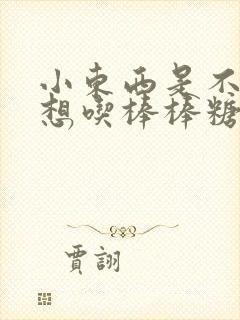 小東西是不
想喫棒棒糖
賈詡